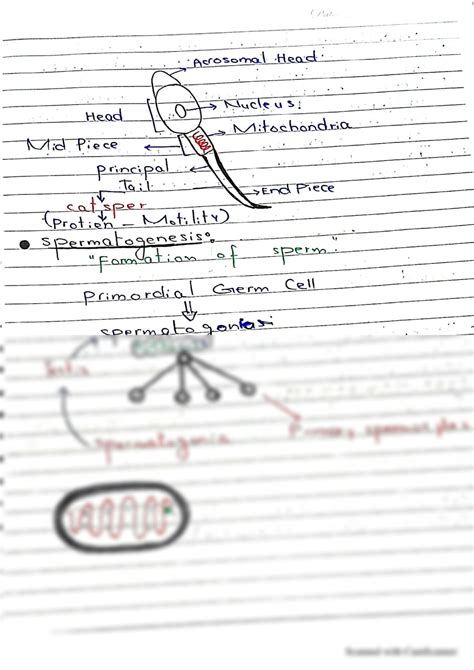 Acrosomal Head.
Head
Nucleus.
Mitochondria
Mid Piece
principal
Tail
End Piece
catsper
(Protien - Motility)
spermatogenesis:
"Formation of sperm"
Primordial Germ Cell
spermatogoniasi
Testis
spermatogonia
Scanned with CamScanner